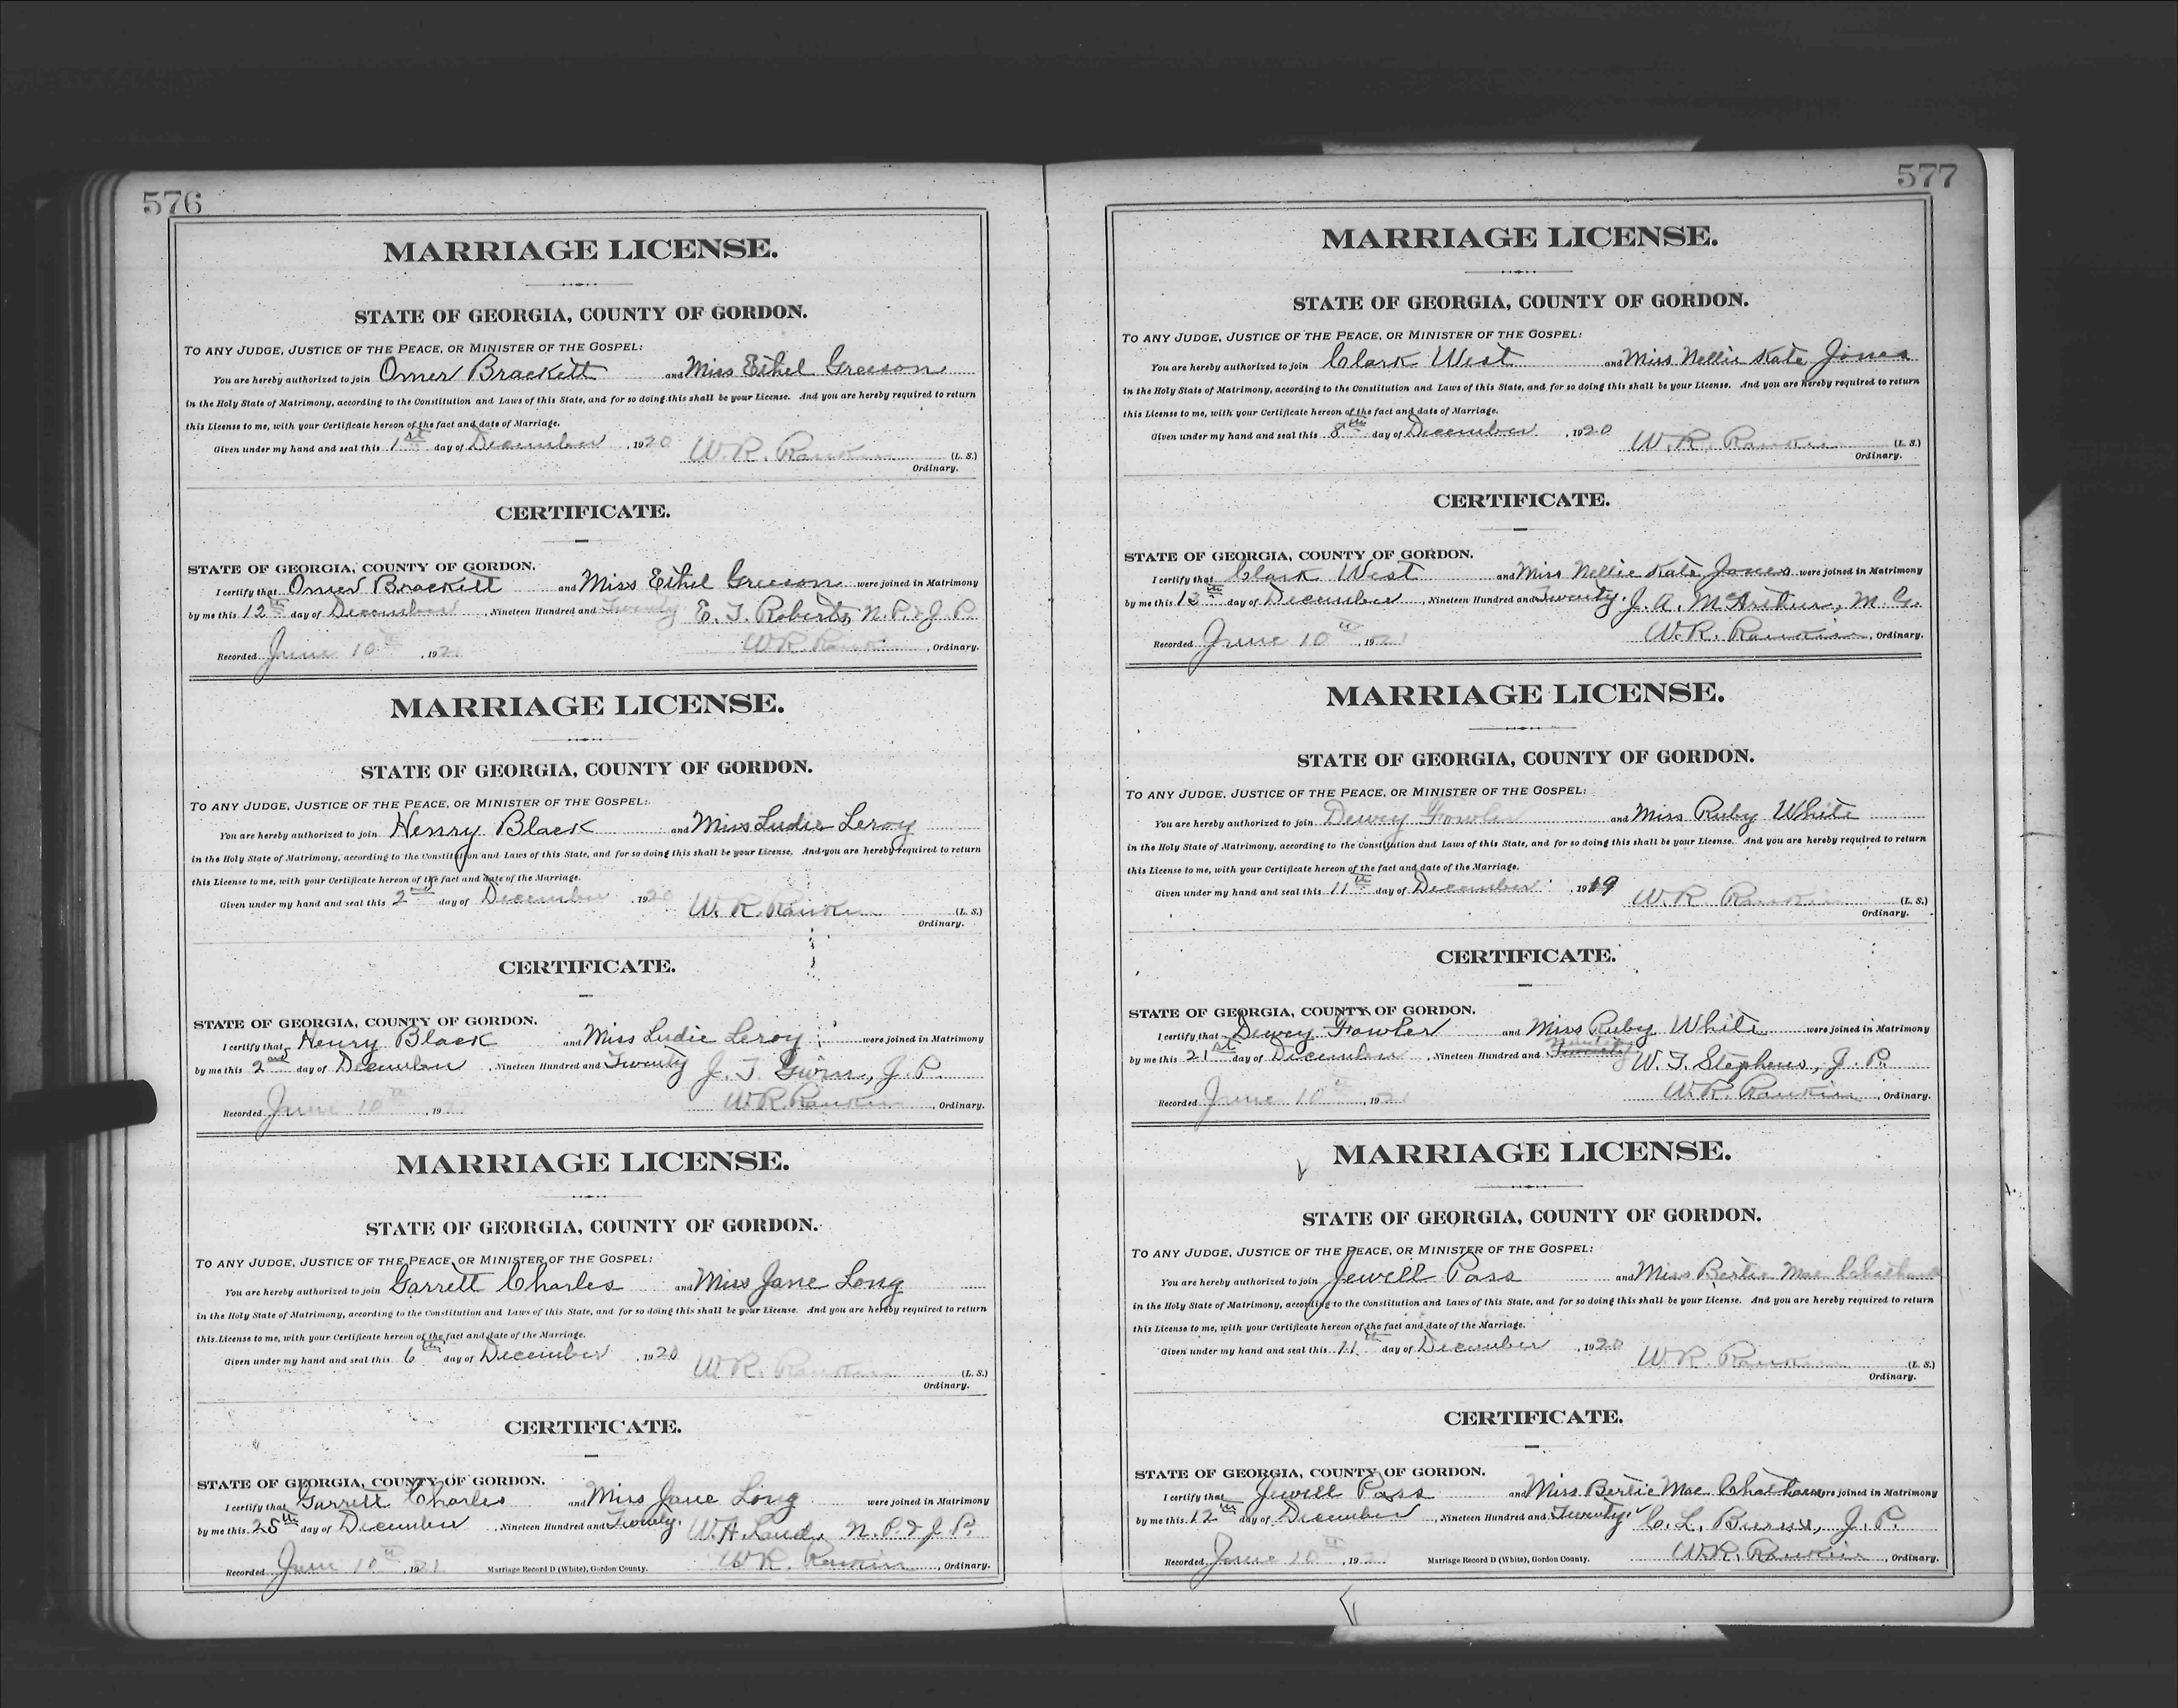 576
MARRIAGE LICENSE.
STATE OF GEORGIA, COUNTY OF GORDON.
TO ANY JUDGE, JUSTICE OF THE PEACE, OR MINISTER OF THE GOSPEL:
You are hereby authorized to join Omer Brackett and Miss Ethel Greeson
in the Holy State of Matrimony, according to the Constitution and Laws of this State, and for so doing this shall be your License. And you are hereby required to return
this License to me, with your Certificate hereon of the fact and date of Marriage.
Given under my hand and seal this 1st day of December, 1920 W. R. Rankin (L. S.)
Ordinary.
CERTIFICATE.
STATE OF GEORGIA, COUNTY OF GORDON.
I certify that Omer Brackett and Miss Ethel Greeson were joined in Matrimony
by me this 12th day of December, Nineteen Hundred and Twenty E. T. Roberts, N. P. & J. P.
Recorded June 10th, 1921 W. R. Rankin, Ordinary.
MARRIAGE LICENSE.
STATE OF GEORGIA, COUNTY OF GORDON.
TO ANY JUDGE, JUSTICE OF THE PEACE, OR MINISTER OF THE GOSPEL:
You are hereby authorized to join Henry Black and Miss Ludie Leroy
in the Holy State of Matrimony, according to the Constitution and Laws of this State, and for so doing this shall be your License. And you are hereby required to return
this License to me, with your Certificate hereon of the fact and date of the Marriage.
Given under my hand and seal this 2nd day of December, 1920 W. R. Rankin (L. S.)
Ordinary.
CERTIFICATE.
STATE OF GEORGIA, COUNTY OF GORDON.
I certify that Henry Black and Miss Ludie Leroy were joined in Matrimony
by me this 2nd day of December, Nineteen Hundred and Twenty J. T. Gwin, J. P.
Recorded June 10th, 19 W. R. Rankin, Ordinary.
MARRIAGE LICENSE.
STATE OF GEORGIA, COUNTY OF GORDON.
TO ANY JUDGE, JUSTICE OF THE PEACE, OR MINISTER OF THE GOSPEL:
You are hereby authorized to join Garrett Charles and Miss Jane Long
in the Holy State of Matrimony, according to the Constitution and Laws of this State, and for so doing this shall be your License. And you are hereby required to return
this License to me, with your Certificate hereon of the fact and date of the Marriage.
Given under my hand and seal this 6th day of December, 1920 W. R. Rankin (L. S.)
Ordinary.
CERTIFICATE.
STATE OF GEORGIA, COUNTY OF GORDON.
I certify that Garrett Charles and Miss Jane Long were joined in Matrimony
by me this 25th day of December, Nineteen Hundred and Twenty. W. H. N. P. & J. P.
Recorded June 10th, 1921 Marriage Record D (White), Gordon County. W. R. Rankin, Ordinary.
577
MARRIAGE LICENSE.
STATE OF GEORGIA, COUNTY OF GORDON.
TO ANY JUDGE, JUSTICE OF THE PEACE, OR MINISTER OF THE GOSPEL:
You are hereby authorized to join Clark West and Miss Nellie Kate Jones
in the Holy State of Matrimony, according to the Constitution and Laws of this State, and for so doing this shall be your License. And you are hereby required to return
this License to me, with your Certificate hereon of the fact and date of Marriage.
Given under my hand and seal this 8th day of December, 1920 W. R. Rankin (L. S.)
Ordinary.
CERTIFICATE.
STATE OF GEORGIA, COUNTY OF GORDON.
I certify that Clark West and Miss Nellie Kate Jones were joined in Matrimony
by me this 12th day of December, Nineteen Hundred and Twenty. J. A. McArthur, M. G.
Recorded June 10th, 1921 W. R. Rankin, Ordinary.
MARRIAGE LICENSE.
STATE OF GEORGIA, COUNTY OF GORDON.
TO ANY JUDGE, JUSTICE OF THE PEACE, OR MINISTER OF THE GOSPEL:
You are hereby authorized to join Dewey Fowler and Miss Ruby White
in the Holy State of Matrimony, according to the Constitution and Laws of this State, and for so doing this shall be your License. And you are hereby required to return
this License to me, with your Certificate hereon of the fact and date of the Marriage.
Given under my hand and seal this 11th day of December, 1919 W. R. Rankin (L. S.)
Ordinary.
CERTIFICATE.
STATE OF GEORGIA, COUNTY OF GORDON.
I certify that Dewey Fowler and Miss Ruby White were joined in Matrimony
by me this 21st day of December, Nineteen Hundred and Twenty W. T. Stephens, J. P.
Recorded June 10th, 1921 W. R. Rankin, Ordinary.
MARRIAGE LICENSE.
STATE OF GEORGIA, COUNTY OF GORDON.
TO ANY JUDGE, JUSTICE OF THE PEACE, OR MINISTER OF THE GOSPEL:
You are hereby authorized to join Jewell Pass and Miss Bertie Mae Chatham
in the Holy State of Matrimony, according to the Constitution and Laws of this State, and for so doing this shall be your License. And you are hereby required to return
this License to me, with your Certificate hereon of the fact and date of the Marriage.
Given under my hand and seal this 11th day of December, 1920 W. R. Rankin (L. S.)
Ordinary.
CERTIFICATE.
STATE OF GEORGIA, COUNTY OF GORDON.
I certify that Jewell Pass and Miss Bertie Mae Chatham were joined in Matrimony
by me this 12th day of December, Nineteen Hundred and Twenty C. L. Burns, J. P.
Recorded June 10th, 192 Marriage Record D (White), Gordon County. W. R. Rankin, Ordinary.